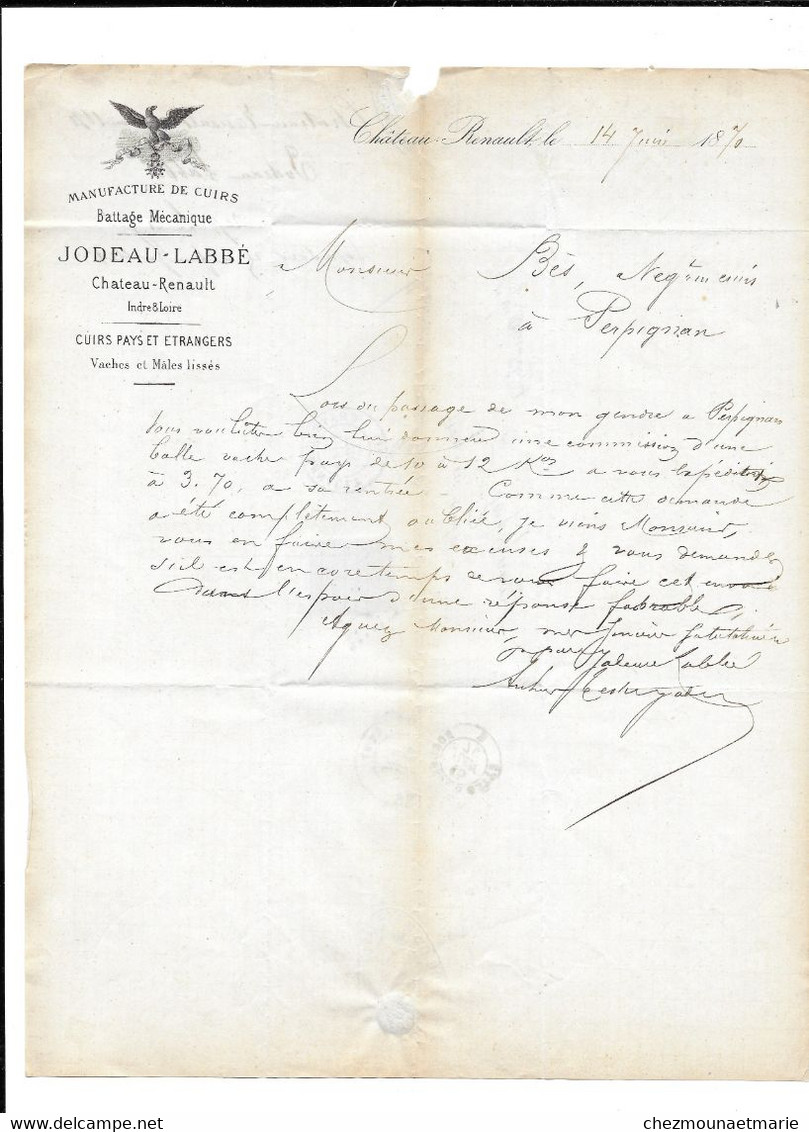 Château-Renault, le 14 Juin 1870
MANUFACTURE DE CUIRS
Battage Mécanique
JODEAU-LABBÉ
Chateau-Renault
Indre & Loire
CUIRS PAYS ET ETRANGERS
Vaches et Mâles lissés
Monsieur Bès, Negt en cuirs
à Perpignan
Lors du passage de mon gendre a Perpignan
vous voulutes bien lui donner une commission d'une
balle vache pays de 10 à 12 Kos a vous expédier
à 3.70, a sa rentrée. Comme cette demande
a été completement oubliée, je viens Monsieur,
vous en faire mes excuses & vous demander
s'il est encore temps de vous faire cet envoi
dans l'espoir d'une réponse favorable,
Agréez Monsieur, mes sincères salutations
Jodeau Labbé
delcampe.net
chezmounaetmarie